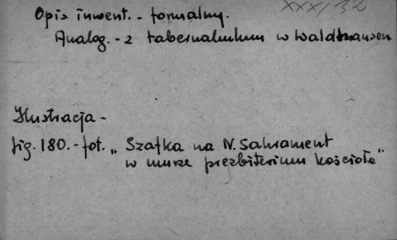 XXXI/32
Opis inwent. - formalny.
Analog. - z tabernakulum w Waldhausen
Ilustracja -
fig. 180. - fot. „Szafka na N. Sakrament
w murze prezbiterium kościoła"